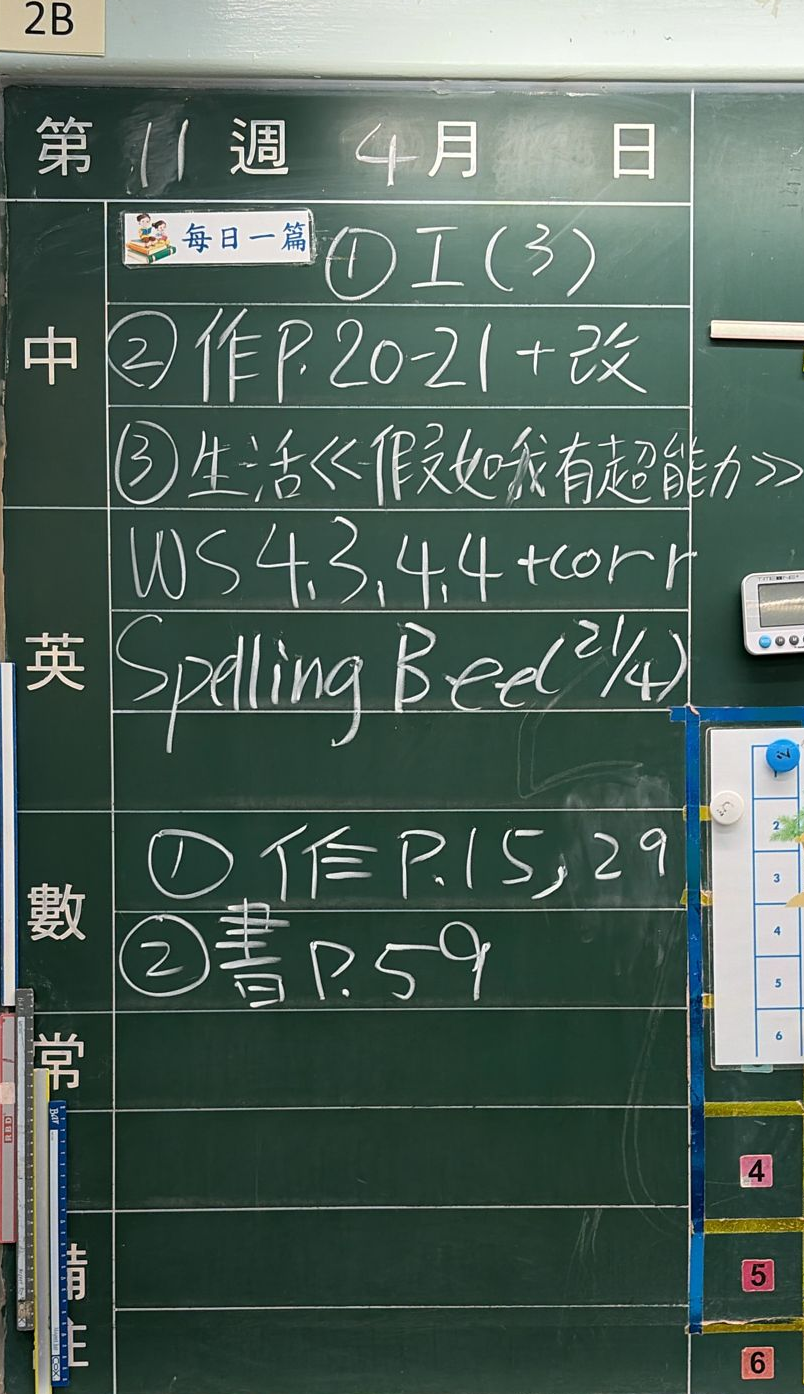 2B
第 11 週 4月 日
每日一篇 ① I (3)
中
② 作 P. 20-21 + 改
③ 生活《假如我有超能力》
WS 4.3, 4.4 + corr
英
Spelling Bee (21/4)
① 作 P. 15, 29
數
② 書 P. 59
常
2
3
4
5
6
4
5
6